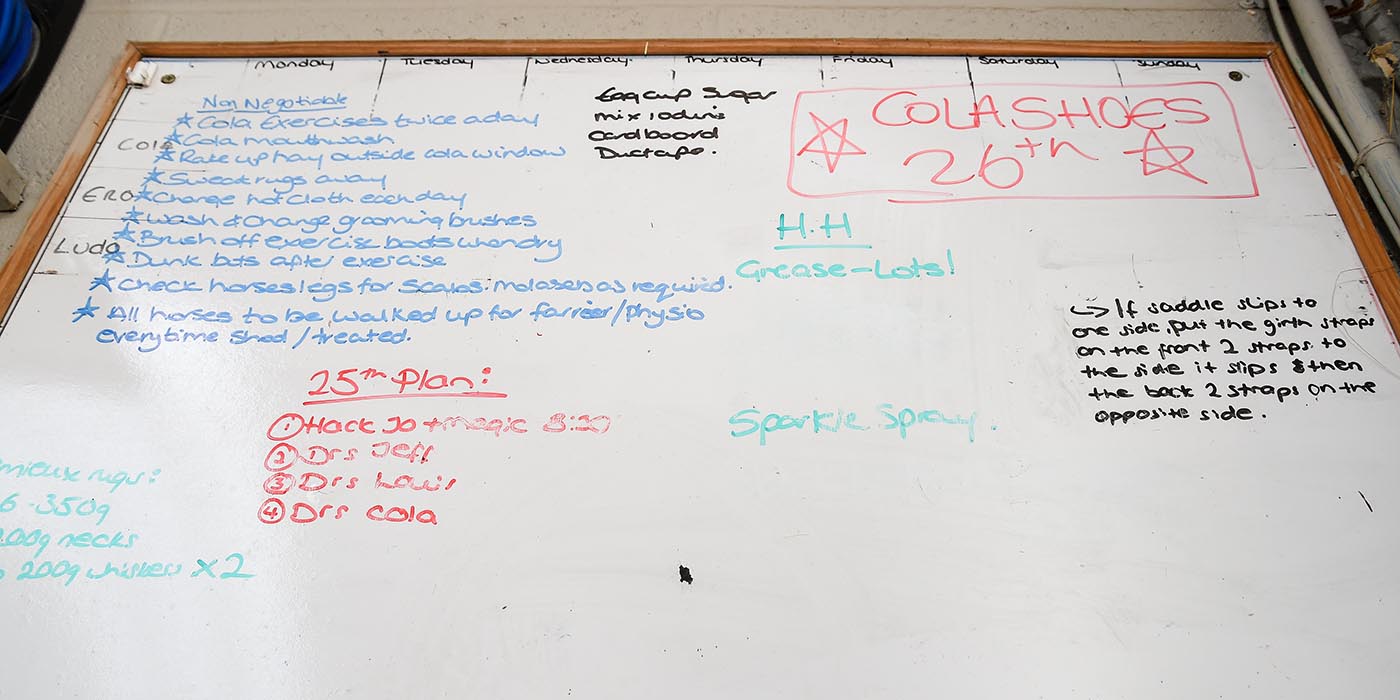 Monday Tuesday Wednesday Thursday Friday Saturday Sunday
Non Negotiable
★ Cola Exercises twice a day
★ Cola mouthwash
★ Rake up hay outside cola window
★ Sweat rugs away
★ Change hot cloth each day
★ Wash & Change grooming brushes
★ Brush off exercise boots when dry
★ Dunk bits after exercise
★ Check horses legs for scabs
as required.
★ All horses to be walked up for farrier/physio
everytime shod/treated.
Cola
ERO
Ludo
Eggcup Sugar
mix iodine
Cardboard
Ductape.
COLA SHOES
26th
H.H
Grease-Lots!
Sparkle Spray.
If saddle slips to
one side, put the girth straps
on the front 2 straps to
the side it slips & then
the back 2 straps on the
opposite side.
25th Plan:
① Hack Jo + Magic 8:30
② Drs Jeff
③ Drs Louis
④ Drs Cola
mieux rugs:
6 - 350g
200g necks
200g x2